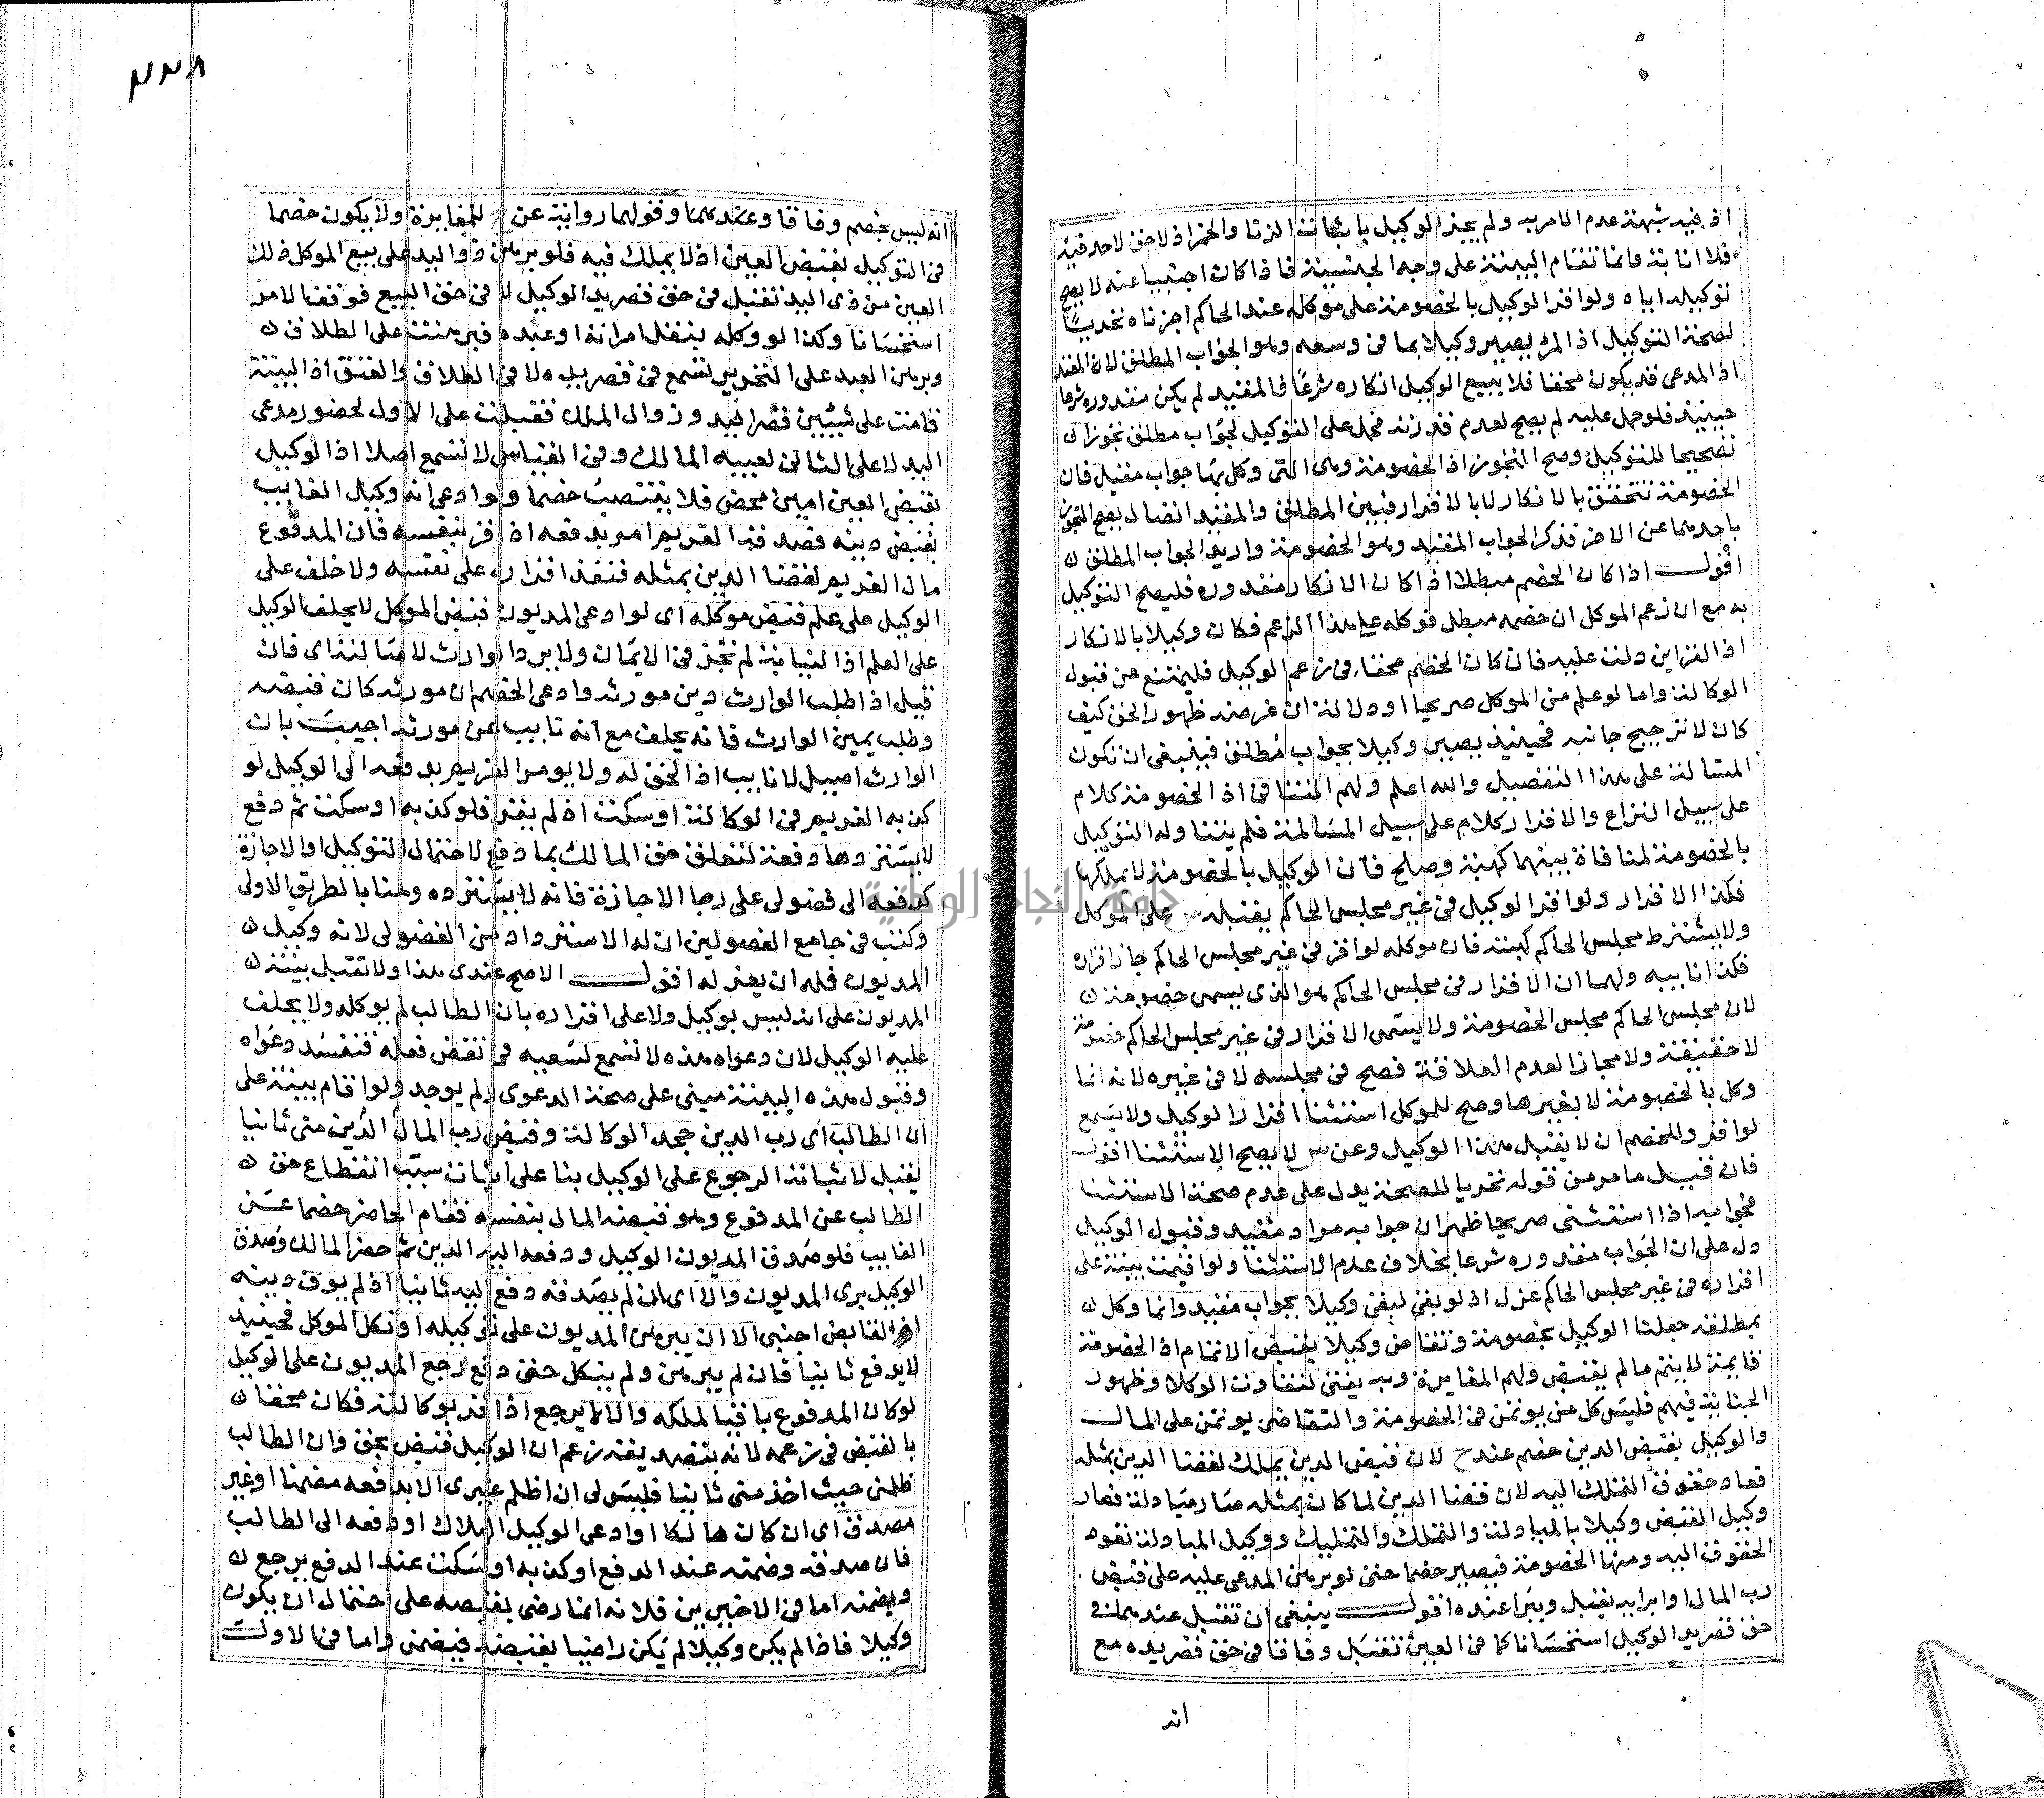 اذ فيه شبهة عدم الامر به ولم يجز الوكيل باثبات الزنا والخمر اذ لا حق لاحد فيه
فلا انابة فانما تقام البينة على وجه الحسبة فاذا كان اجنبيا عنه لا يصح
توكيله اياه ولو اقر الوكيل بالخصومة على موكله عند الحاكم اجزناه تحريا
لصحة التوكيل اذ المرء يصير وكيلا بما في وسعه وهو الجواب المطلق لا المقيد
اذ المدعى قد يكون محقا فلا يبيع الوكيل انكاره شرعا فالمقيد لم يكن مقدوره شرعا
حينئذ فلو حمل عليه لم يصح لعدم قدرته فحمل على التوكيل لجواب مطلق تجوزا
تصحيحا للتوكيل وصح التجوز اذ الخصومة وهي التي وكل بها جواب مقيد فان
الخصومة تتحقق بالانكار لا بالاقرار فبين المطلق والمقيد اتصال يصح التجوز
باحدهما عن الاخر فذكر الجواب المقيد وهو الخصومة واريد الجواب المطلق
اقول اذا كان الخصم مبطلا اذا كان الانكار مقدوره فليصح التوكيل
به مع ان زعم الموكل ان خصمه مبطل فوكله على هذا الزعم فكان وكيلا بالانكار
اذ القراين دلت عليه فان كان الخصم محقا في زعم الوكيل فليمتنع عن قبول
الوكالة واما لو علم من الموكل صريحا او دلالة ان غرضه ظهور الحق كيف
كان لا ترجيح جانبه فحينئذ يصير وكيلا بجواب مطلق فينبغي ان تكون
المسالة على هذا التفصيل والله اعلم ولهم التنافي اذ الخصومة كلام
على سبيل النزاع والاقرار كلام على سبيل المسالمة فلم يتناوله التوكيل
بالخصومة لمنافاة بينهما كهبة وصلح فان الوكيل بالخصومة لا يملكها
فكذا الاقرار ولو اقر الوكيل في غير مجلس الحاكم يقبله س على الموكل
ولا يشترط مجلس الحاكم كبينة فان موكله لو اقر في غير مجلس الحاكم جاز اقراره
فكذا نايبه ولهما ان الاقرار في مجلس الحاكم هو الذي يسمى خصومة
لان مجلس الحاكم مجلس الخصومة ولا يسمى الاقرار في غير مجلس الحاكم خصومة
لا حقيقة ولا مجازا لعدم العلاقة فصح في مجلسه لا في غيره لانه انما
وكل بالخصومة لا بغيرها وصح للموكل استثنا اقرار الوكيل ولا يسمع
لو اقر وللخصم ان لا يقبل هذا الوكيل وعن س لا يصح الاستثنا اقول
فان قيل ما مر من قوله تحريا للصحة يدل على عدم صحة الاستثنا
فجوابه اذا استثنى صريحا ظهر ان جوابه مراد مقيد وقبول الوكيل
دل على ان الجواب مقدوره شرعا بخلاف عدم الاستثنا ولو اقيمت بينة على
اقراره في غير مجلس الحاكم عزل اذ لو بقي لبقي وكيلا بجواب مقيد وانما وكل
بمطلقه جعلنا الوكيل بخصومة وتقاض وكيلا بقبض الاتمام اذ الخصومة
قايمة لا يتم ما لم يقبض ولهم المغايرة وبه يفتى لتفاوت الوكلا وظهور
الخيانة فيهم فليس كل من يوتمن في الخصومة والتقاضي يوتمن على المال
والوكيل بقبض الدين خصم عند ح لان قبض الدين يملك لقضا الدين بمثله
فعاد حقوق التملك اليه لان قضا الدين لما كان بمثله صار مبادلة فصار
وكيل القبض وكيلا بالمبادلة والتملك والتمليك ووكيل المبادلة تعود
الحقوق اليه ومنها الخصومة فيصير خصما حتى لو برهن المدعى عليه على قبض
رب المال او ابرايه يقبل ويبرا عنده اقول ينبغي ان تقبل عندهما في
حق قصر يد الوكيل استحسانا كما في العين تقبل وفاقا في حق قصر يده مع
انه
٢٢٨
انه ليس بخصم وفاقا وعندهما وقولهما رواية عن ح للمغايرة ولا يكون خصما
في التوكيل بقبض العين اذ لا يملك فيه فلو برهن ذو اليد على بيع الموكل ذلك
العين من ذي اليد تقبل في حق قصر يد الوكيل لا في حق البيع فوقف الامر
استحسانا وكذا لو وكله بنقل امراته او عبده فبرهنت على الطلاق
وبرهن العبد على التحرير تسمع في قصر يده لا في الطلاق والعتق اذ البينة
قامت على شيئين قصر اليد وزوال الملك فقبلت على الاول لحضور مدعي
اليد لا على الثاني لغيبة المالك وفي القياس لا تسمع اصلا اذ الوكيل
بقبض العين امين محض فلا ينتصب خصما ولو ادعى انه وكيل الغايب
بقبض دينه فصدقه الغريم امر بدفعه اذ اقر بنفسه فان المدفوع
مال الغريم لقضا الدين بمثله فنفذ اقراره على نفسه ولا حلف على
الوكيل على علم قبض موكله اي لو ادعى المديون قبض الموكل لا يحلف الوكيل
على العلم اذ النيابة لم تجز في الايمان ولا يرد الوارث لاصالته اي فان
قيل اذا طلب الوارث دين مورثه وادعى الخصم ان مورثه كان قبضه
وطلب يمين الوارث فانه يحلف مع انه نايب عن مورثه اجيب بان
الوارث اصيل لا نايب اذ الحق له ولا يومر الغريم بدفعه الى الوكيل لو
كذبه الغريم في الوكالة او سكت اذ لم يقر فلو كذبه او سكت ثم دفع
لا يستردها دفعة لتعلق حق المالك بما دفع لاحتمال التوكيل او الاجازة
كدفعه الى فضولي على رجا الاجازة فانه لا يسترده وهنا بالطريق الاولى
وكتب في جامع الفصولين ان له الاسترداد من الفضولي لانه وكيل
المديون فله ان يعزله اقول الاصح عندي هذا ولا تقبل بينة
المديون على انه ليس بوكيل ولا على اقراره بان الطالب لم يوكله ولا يحلف
عليه الوكيل لان دعواه هذه لا تسمع لسعيه في نقض فعله فتفسد دعواه
وقبول هذه البينة مبني على صحة الدعوى ولم يوجد ولو اقام بينة على
ان الطالب اي رب الدين جحد الوكالة وقبض رب المال الدين مني ثانيا
يقبل لاثباته الرجوع على الوكيل بنا على اثبات سبب انقطاع حق
الطالب عن المدفوع وهو قبضه المال بنفسه فقام الحاضر خصما عن
الغايب فلو صدق المديون الوكيل ودفعه اليه الدين ثم حضر المالك وصدق
الوكيل برئ المديون والا اي ان لم يصدقه دفع اليه ثانيا اذ لم يوف دينه
اذ القابض اجنبي الا ان يبرهن المديون على توكيله او نكل الموكل فحينئذ
لا يدفع ثانيا فان لم يبرهن ولم ينكل حتى دفع رجع المديون على الوكيل
لو كان المدفوع باقيا لملكه والا لا يرجع اذا قر بوكالته فكان محقا
بالقبض في زعمه لانه بتصديقه زعم ان الوكيل قبض بحق وان الطالب
ظلمني حيث اخذ مني ثانيا فليس لي ان اظلم غيري الا بدفعه مضمنا او غير
مصدق اي ان كان هالكا او ادعى الوكيل الهلاك او دفعه الى الطالب
فان صدقه وضمنه عند الدفع او كذبه او سكت عند الدفع يرجع
ويضمنه اما في الاخيرين فلانه انما رضي بقبضه على احتمال ان يكون
وكيلا فاذا لم يكن وكيلا لم يكن راضيا بقبضه فيضمن واما في الاول
جامعة النجاح الوطنية